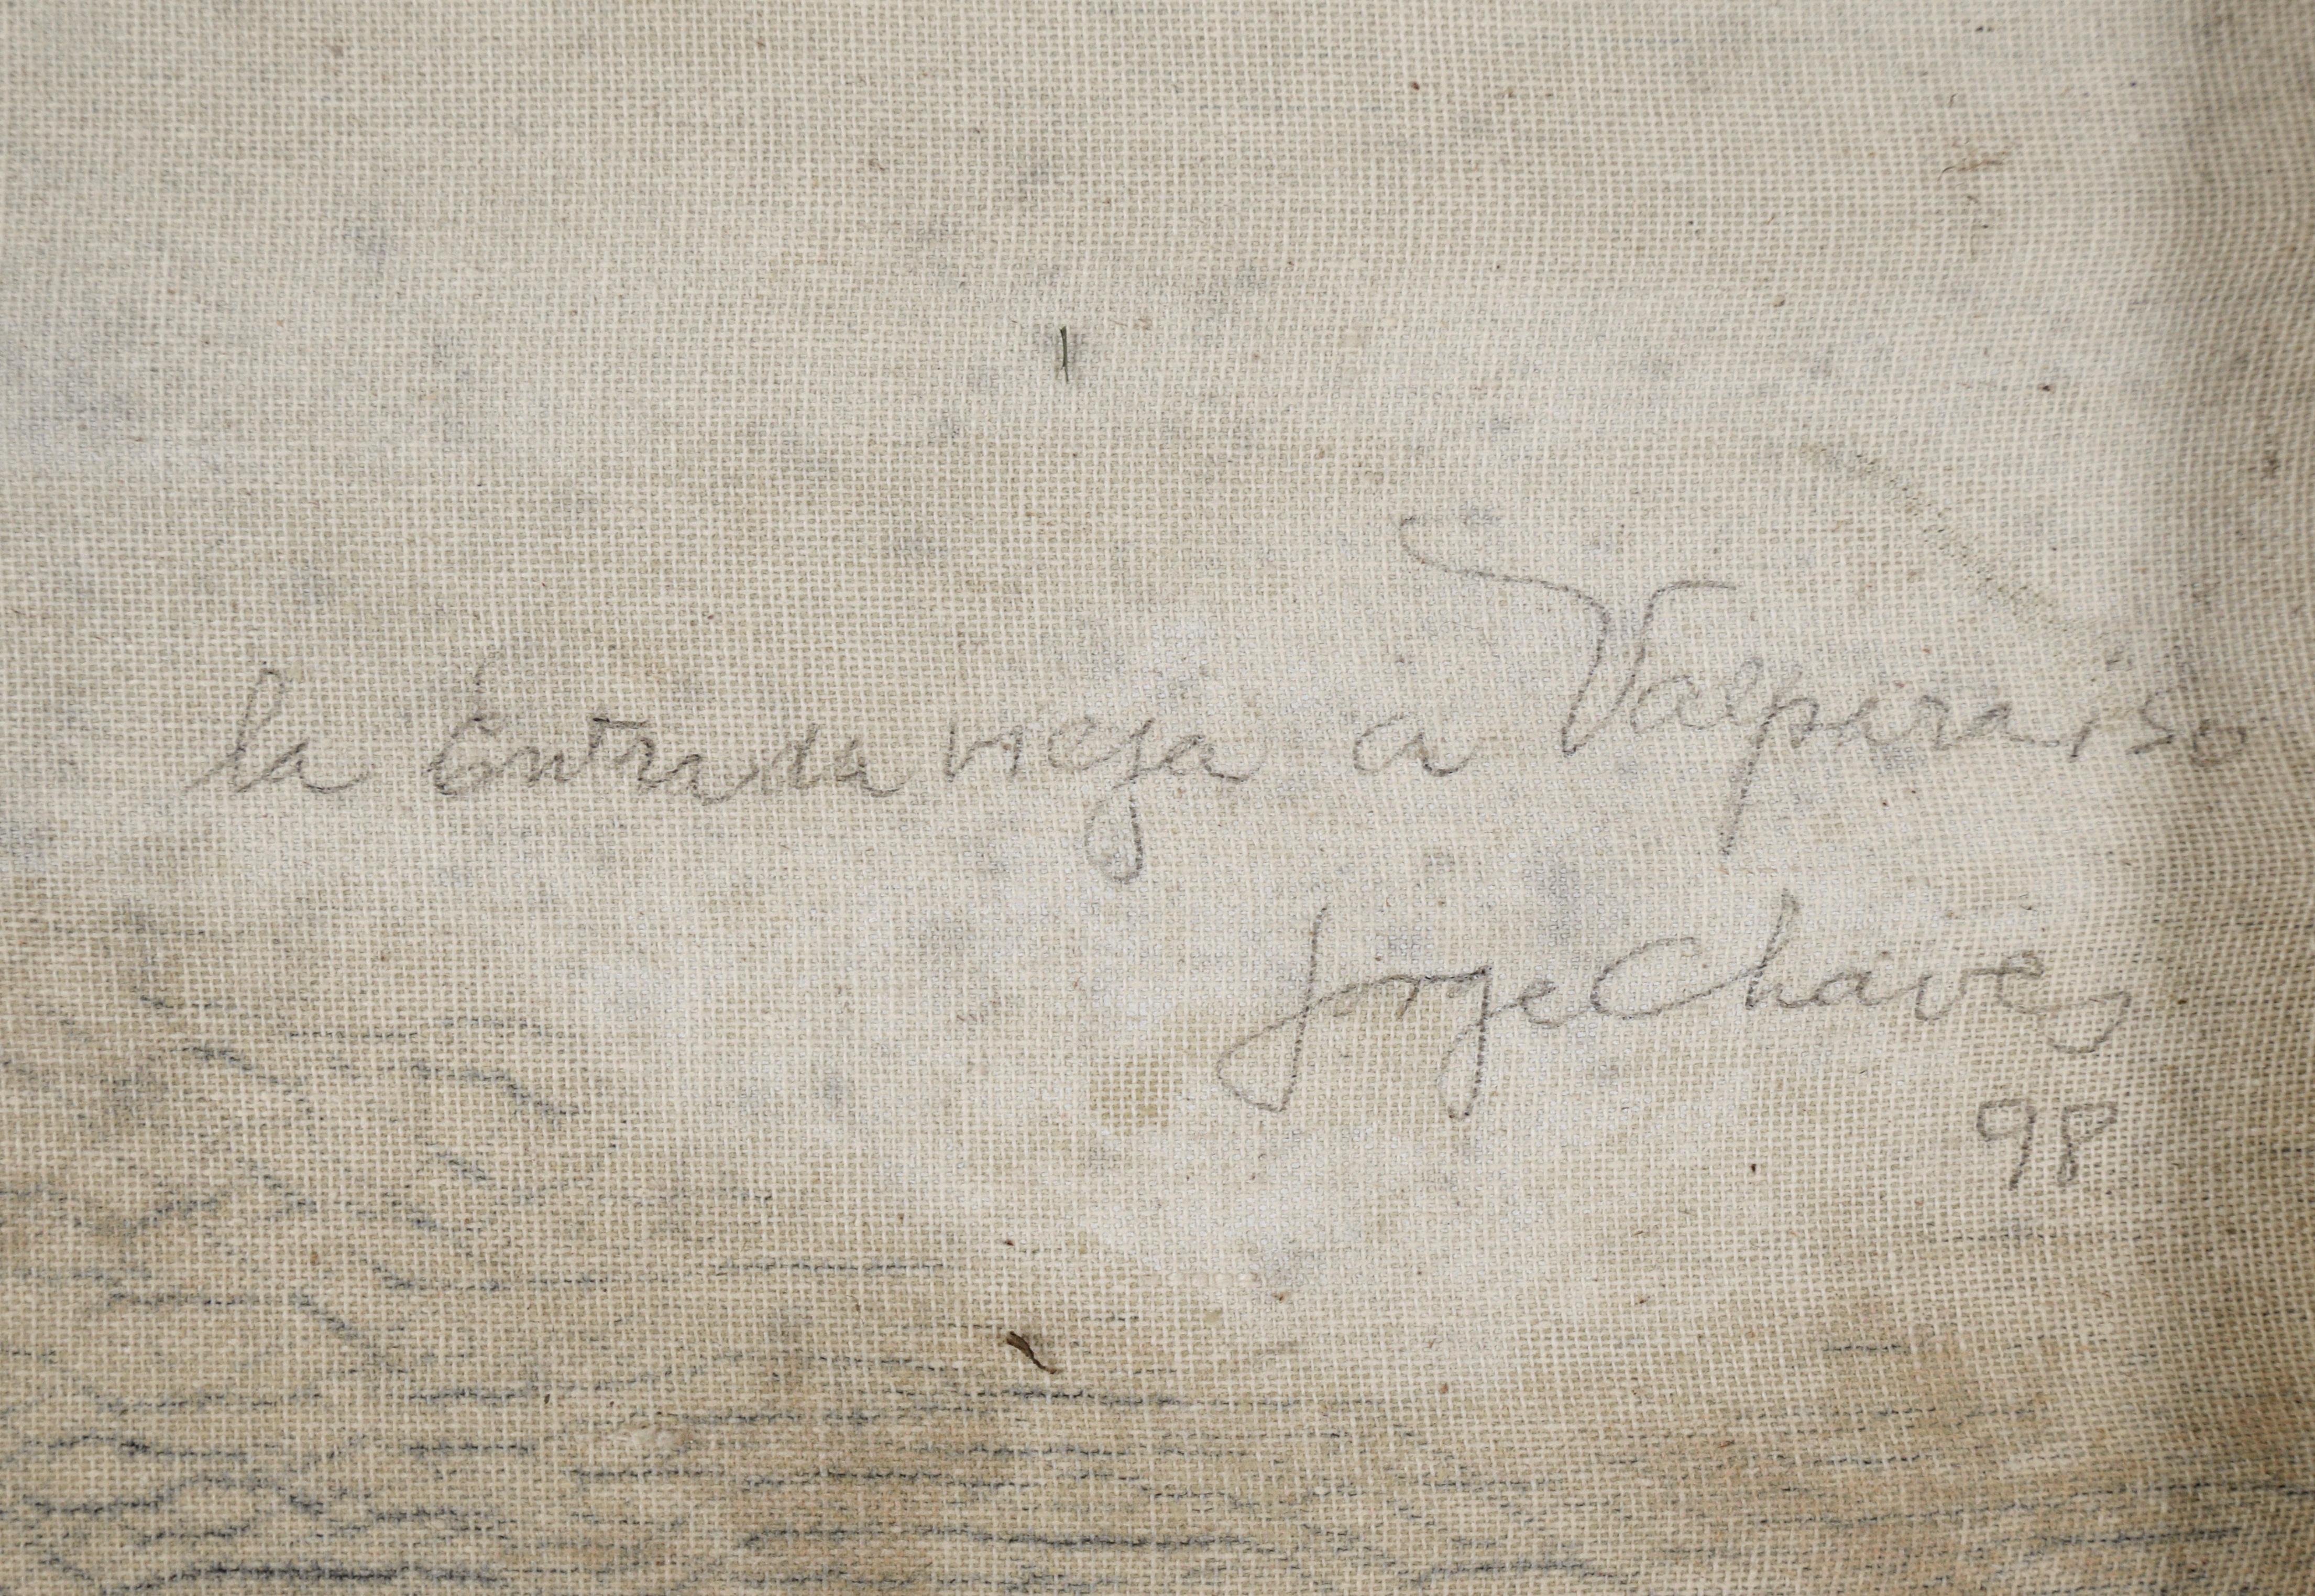 la Entrada vieja a Valparaiso
Jorge Chaves
98